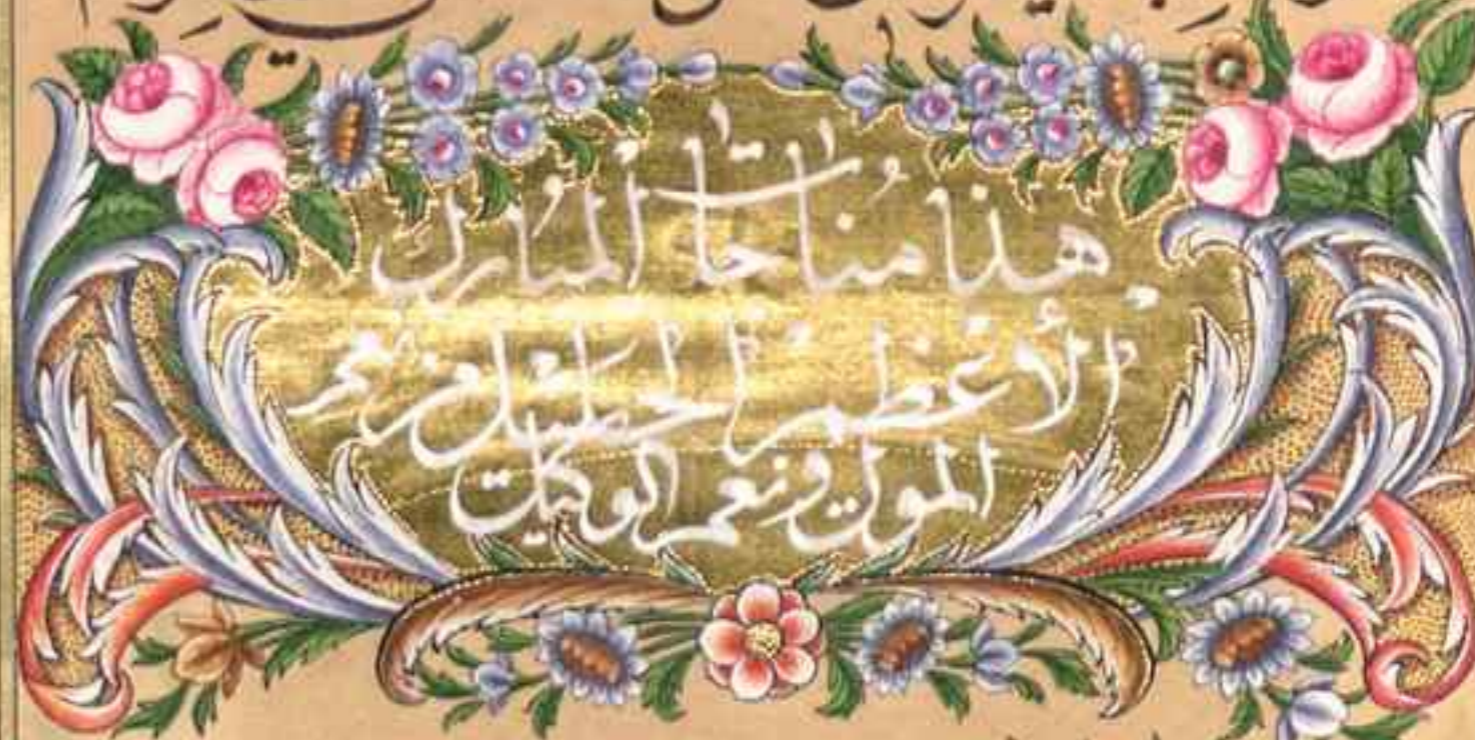 هذا مُناجات المُبارك
الأعظم الجليل فنعم
المولى ونعم الوكيل